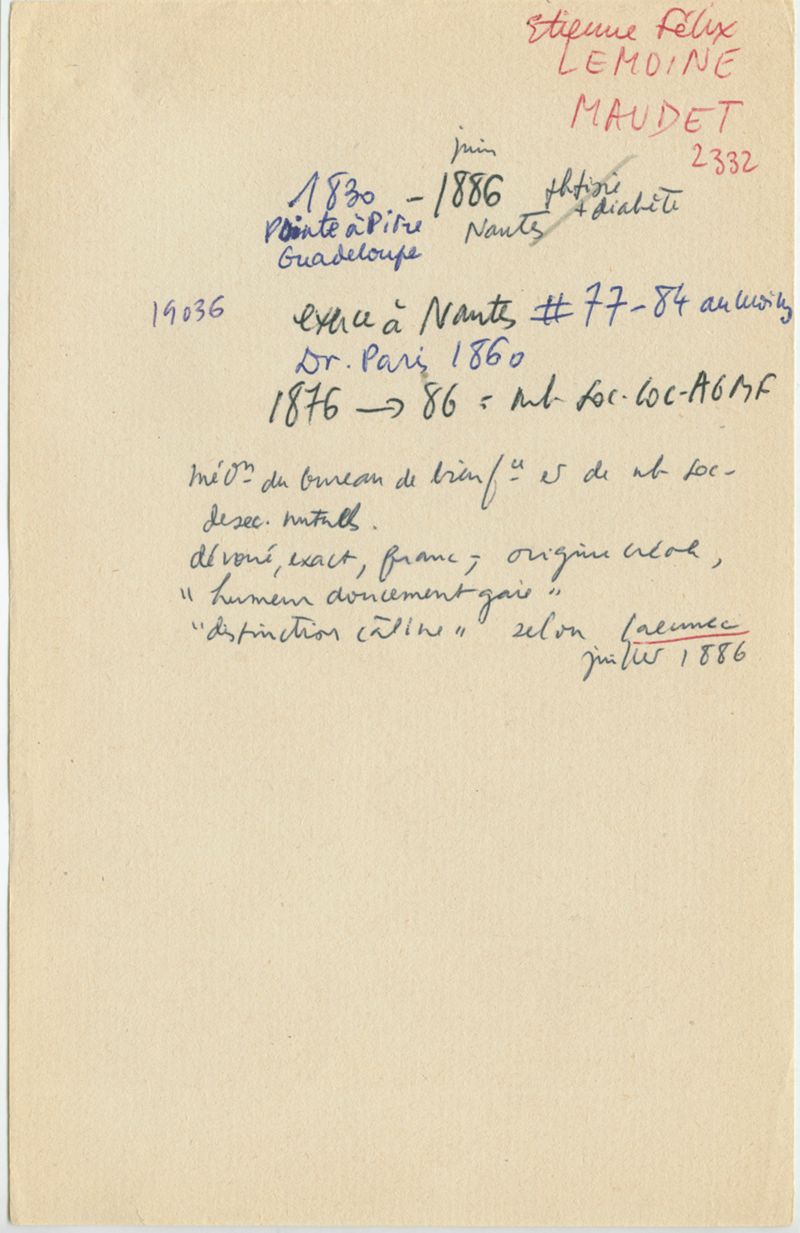 Etienne Félix
LEMOINE
MAUDET
2332
juin
1830 - 1886 phtisie
+ diabète
Pointe à Pitre Nantes
Guadeloupe
19036 exerce à Nantes # 77-84 au moins
Dr. Paris 1860
1876 → 86 = mb Soc. loc. AGMF
méd^in du bureau de bienf^ce et de nb Soc-
de sec. mutuels.
dévoué, exact, franc, origine créole,
"humeur doucement gaie"
"distinction câline" selon Laennec
juillet 1886